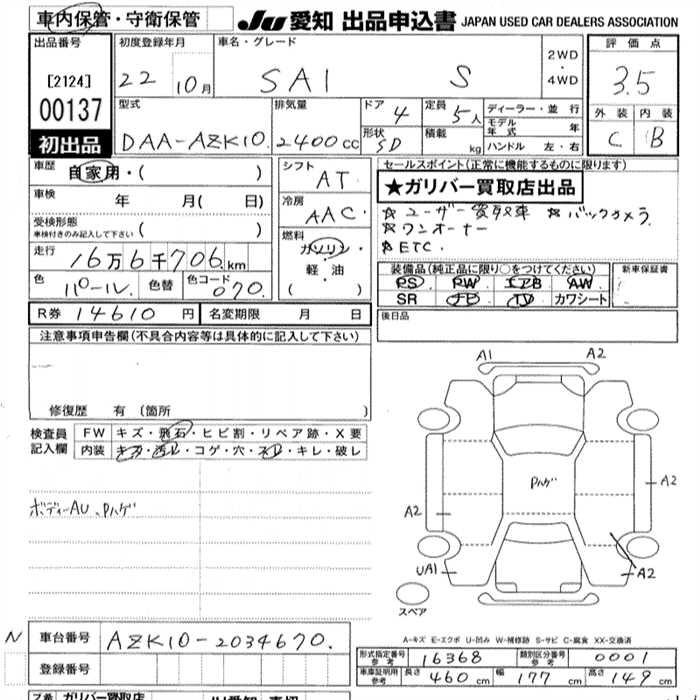 車内保管・守衛保管 JU 愛知 出品申込書 JAPAN USED CAR DEALERS ASSOCIATION
出品番号 初度登録年月 車名・グレード 評価点
[2124] 22 10月 SAI S 2WD・4WD 3.5
00137 型式 排気量 ドア 4 定員 5人 ディーラー・並行 外装 内装
初出品 DAA-AZK10. 2400cc 形状 SD 積載 kg モデル年式 年 C B
ハンドル 左・右
車歴 自家用・( ) シフト AT セールスポイント(正常に機能するものに限ります)
車検 年 月( 日) 冷房 AAC. ★ガリバー買取店出品
受検形態 車検付きのみ記入して下さい ( ) ☆ユーザー買取車 ☆バックカメラ
☆ワンオーナー
走行 16万6千706.km 燃料 ガソリン・軽・油 ( ) ☆ETC.
色 パール. 色替 色コード 070. 装備品(純正品に限り○をつけてください) 新車保証書
PS PW エアB AW
SR ナビ TV カワシート
R券 14610 円 名変期限 月 日 後日品
注意事項申告欄(不具合内容等は具体的に記入して下さい)
A1 A2
修復歴 有 (箇所 )
検査員記入欄 FW キズ・飛石・ヒビ割・リペア跡・X要
内装 キズ・汚れ・コゲ・穴・スレ・キレ・破レ
Pハゲ A2
ボディーAU、Pハゲ A2
UA1 A2
スペア
A-キズ E-エクボ U-凹み W-補修跡 S-サビ C-腐食 XX-交換済
N 車台番号 AZK10-2034670. 形式指定番号 参考 16368 類別区分番号 参考 0001
登録番号 車庫証明用 参考 長さ 460cm 幅 177cm 高さ 149cm
ガリバー買取店 JU愛知